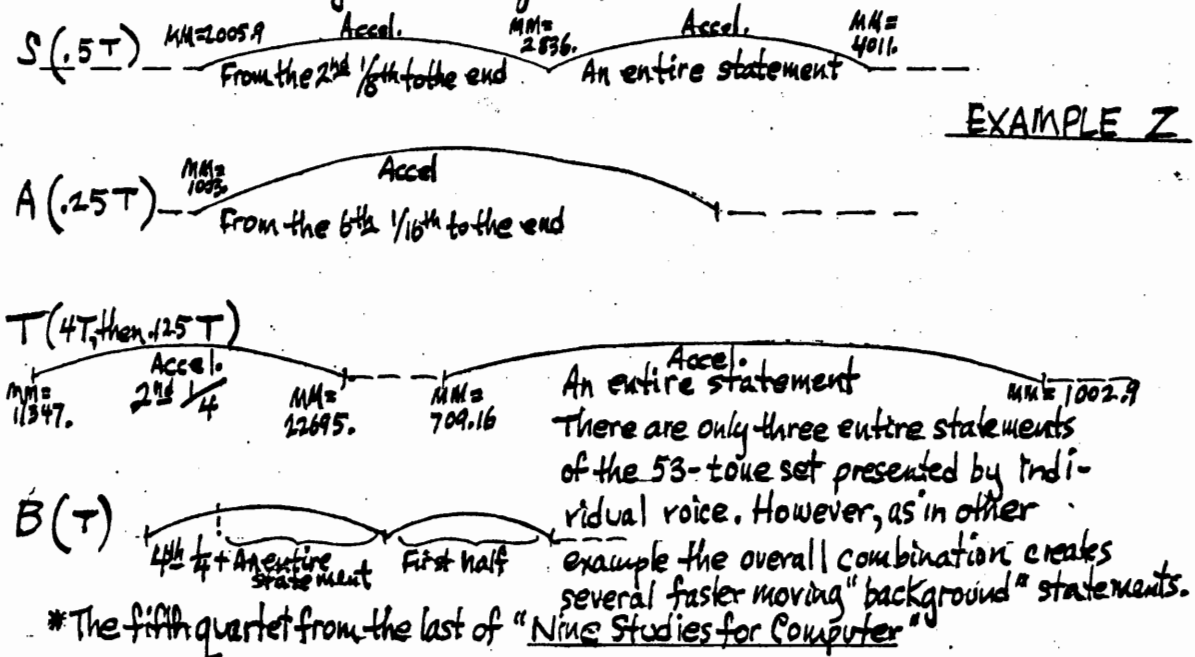 S (.5T) MM=2005.9 Accel. MM= 2836. Accel. MM= 4011.
From the 2nd 1/8th to the end An entire statement
EXAMPLE Z
A (.25T) MM= 1003. Accel
From the 6th 1/16th to the end
T (4T, then .125T)
Accel. Accel.
MM= 11347. 2nd 1/4 MM= 22695. MM= 709.16 An entire statement MM= 1002.9
There are only three entire statements
of the 53-tone set presented by indi-
vidual voice. However, as in other
B (T)
4th 1/4 + An entire statement First half example the overall combination creates
several faster moving "background" statements.
*The fifth quartet from the last of "Nine Studies for Computer"